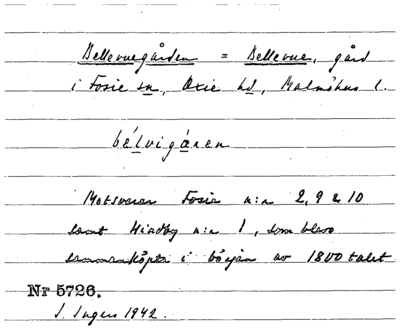 Bellevuegården = Bellevue, gård
i Fosie sn, Oxie hd, Malmöhus l.
bélvigảren
Motsvarar Fosie n:r 2, 9 & 10
samt Hindby n:r 1, som blevo
sammanköpta i början av 1800 talet
Nr 5726.
I. Ingers 1942.